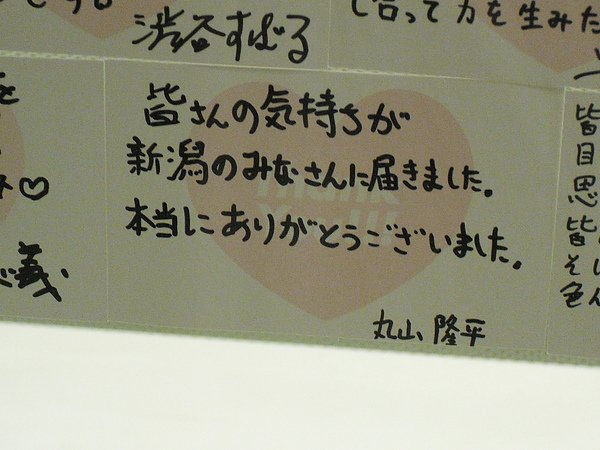 渋谷すばる
し合って力を生みた
皆さんの気持ちが
新潟のみなさんに届きました。
本当にありがとうございました。
丸山隆平
義
皆
目
思
皆
そし
色ん